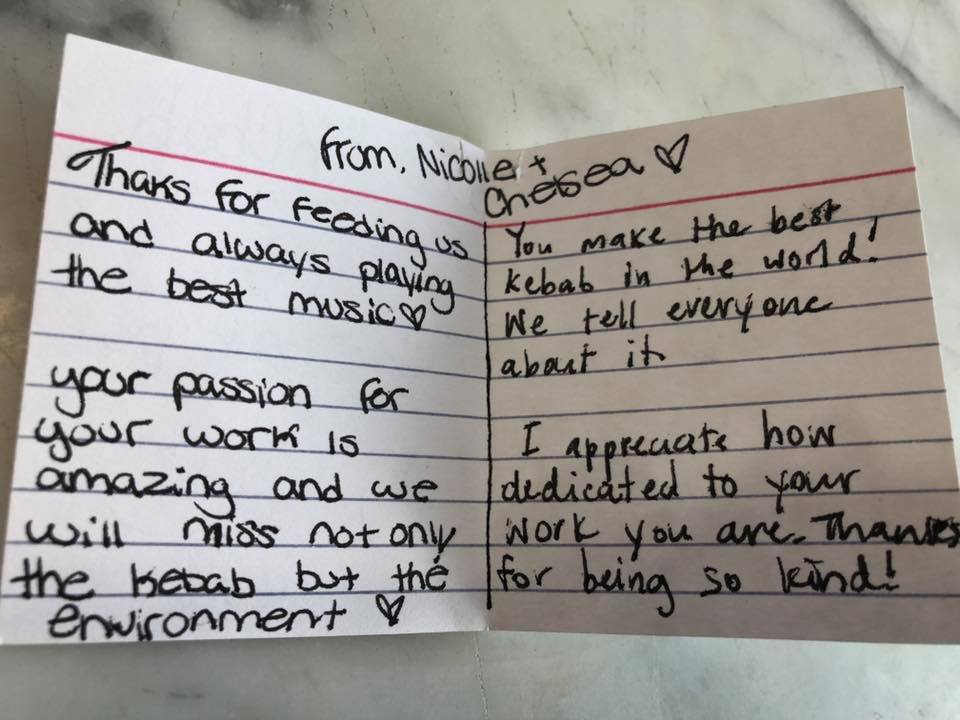 From, Nicolle +
Chelsea ♡
Thaks for feeding us
and always playing
the best music♡
your passion for
your work is
amazing and we
will miss not only
the kebab but the
environment ♡
You make the best
kebab in the world!
We tell everyone
about it
I appreciate how
dedicated to your
work you are. Thanks
for being so kind!